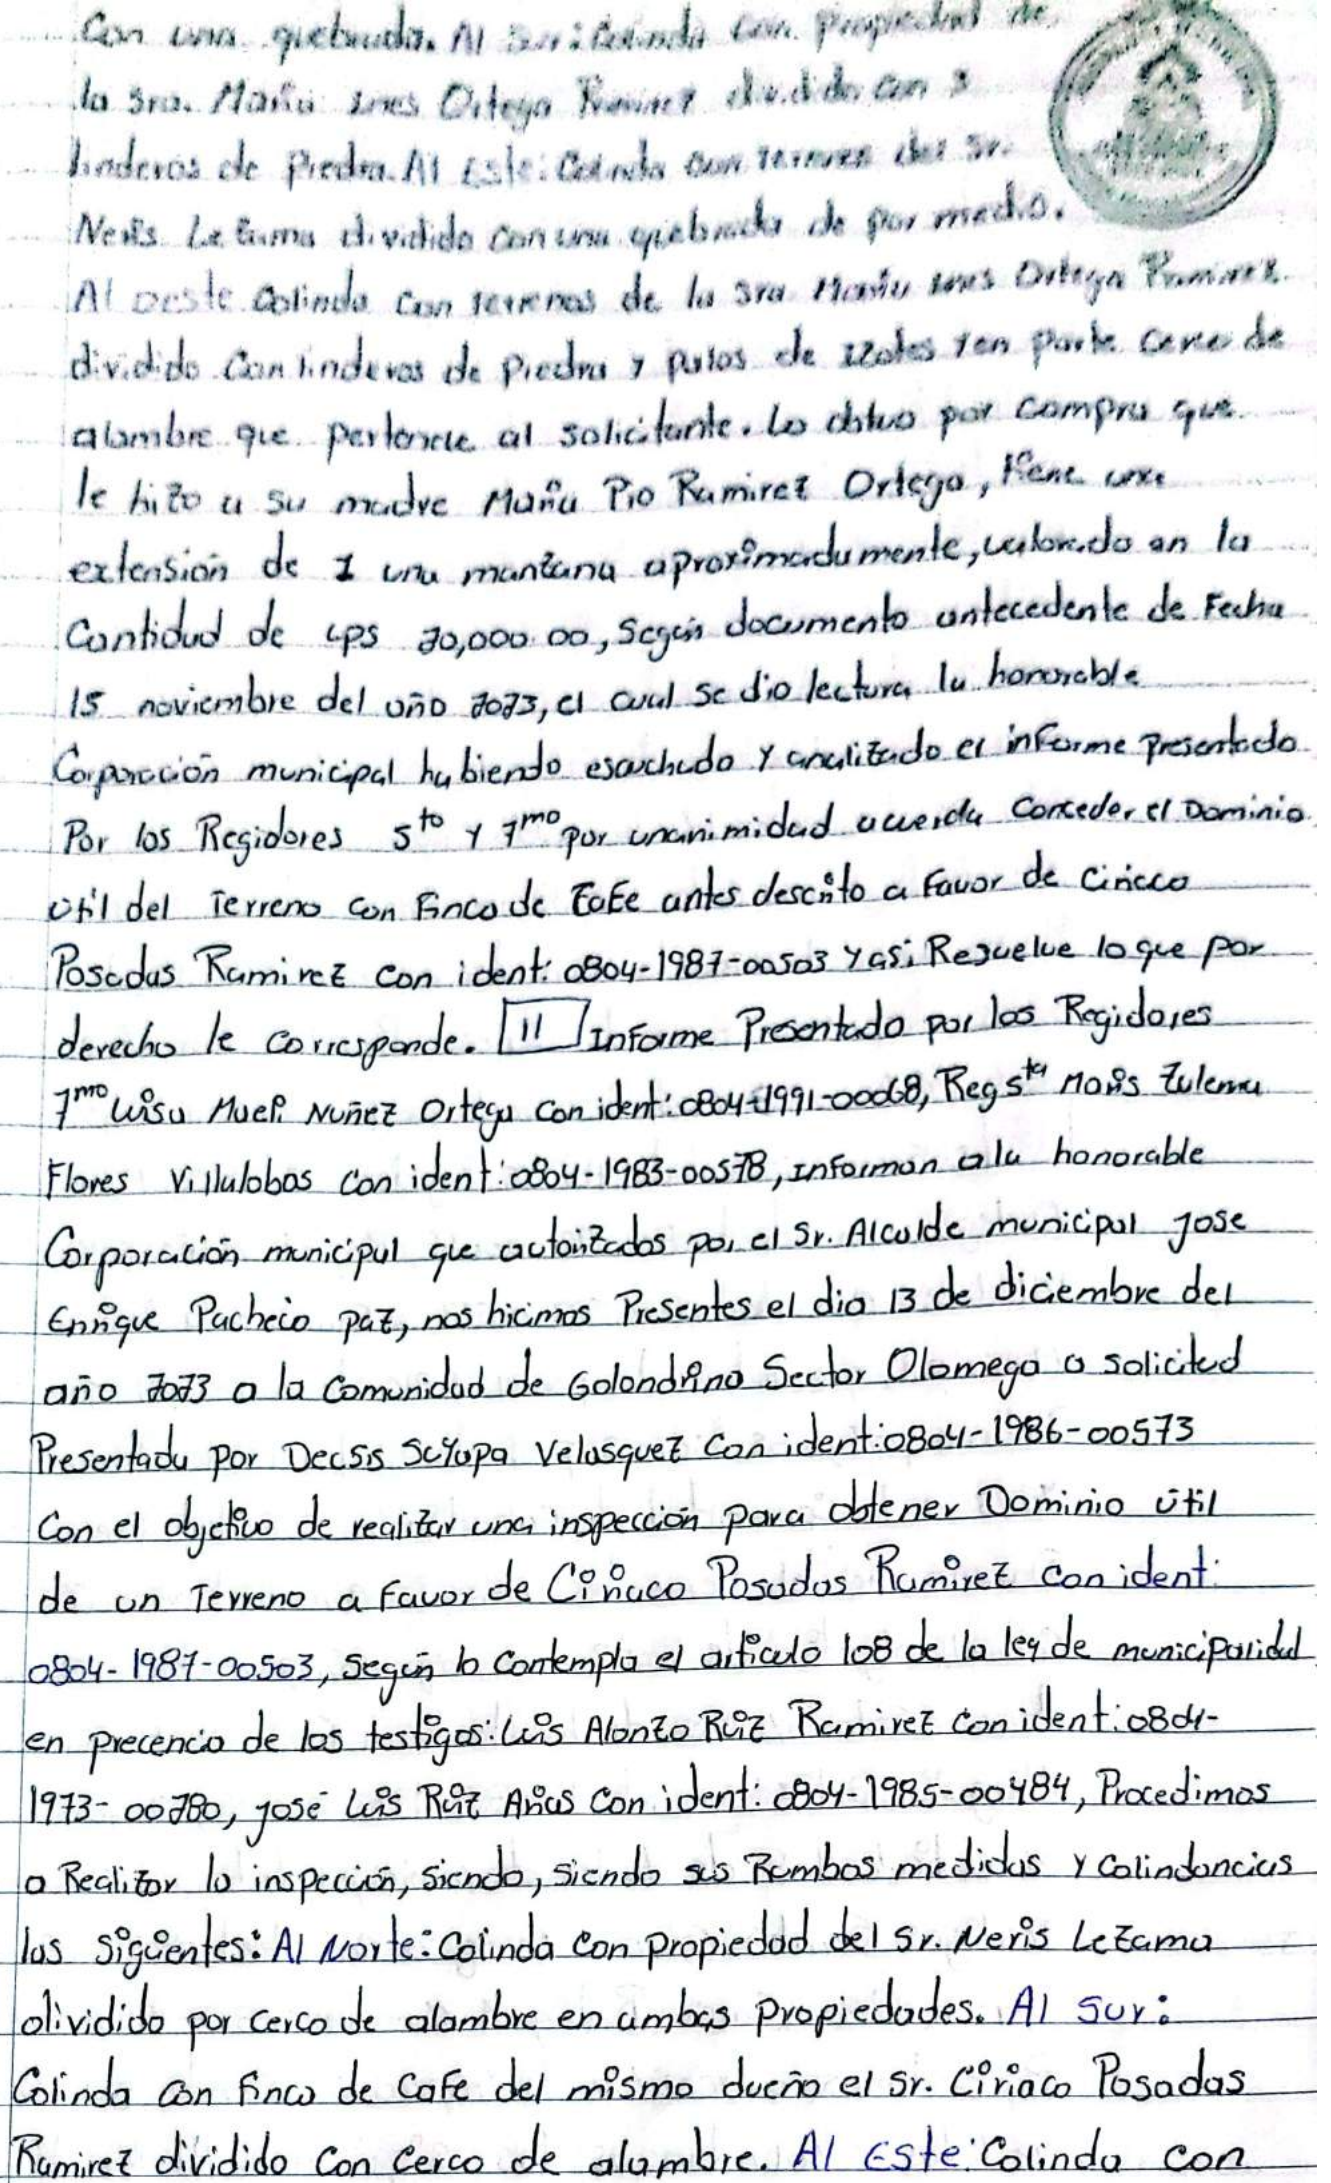 Con una quebrada. Al Sur: Colinda con propiedad de
la Sra. Maria Ines Ortega Ramirez dividido con 3
linderos de Piedra. Al Este: Colinda con terreno del Sr.
Neris Lezama dividido con una quebrada de por medio.
Al oeste Colinda con terrenos de la Sra Maria Ines Ortega Ramirez
dividido Con linderos de Piedra y palos de izotes y en parte cerco de
alambre que pertenece al solicitante. Lo obtuvo por compra que
le hizo a su madre Maria Pio Ramirez Ortega, tiene una
extensión de 1 una manzana aproximadamente, valorado en la
Cantidad de Lps 20,000.00, Según documento antecedente de Fecha
15 noviembre del año 2023, el cual se dio lectura, la honorable
Corporación municipal habiendo escuchado y analizado el informe presentado
Por los Regidores 5to y 7mo por unanimidad acuerda Conceder el Dominio
útil del Terreno con Finca de Cafe antes descrito a Favor de Ciriaco
Posadas Ramirez con ident: 0804-1987-00503 y asi Resuelve lo que por
derecho le corresponde. 11 Informe Presentado por los Regidores
7mo Luisa Mueli Nuñez Ortega con ident: 0804-1991-00068, Reg 5ta Maris Zulema
Flores Villalobos con ident: 0804-1983-00578, informan a la honorable
Corporación municipal que autorizados por el Sr. Alcalde municipal Jose
Enrique Pacheco paz, nos hicimos Presentes el dia 13 de diciembre del
año 2023 a la Comunidad de Golondrina Sector Olomega a solicitud
Presentada por Decsis Scyapa Velasquez con ident: 0804-1986-00573
Con el objetivo de realizar una inspección para obtener Dominio útil
de un Terreno a Favor de Ciriaco Posadas Ramirez con ident:
0804-1987-00503, Según lo Contempla el articulo 108 de la ley de municipalidad
en precencia de los testigos: Luis Alonzo Ruiz Ramirez con ident: 0801-
1973-00280, josé Luis Ruiz Arias Con ident: 0804-1985-00484, Procedimos
a Realizar la inspección, siendo, siendo sus Rumbos medidas y Colindancias
las siguientes: Al Norte: Colinda con propiedad del Sr. Neris Lezama
dividido por cerco de alambre en ambas propiedades. Al Sur:
Colinda con Finca de Cafe del mismo dueño el Sr. Ciriaco Posadas
Ramirez dividido con Cerco de alambre. Al Este: Colinda con